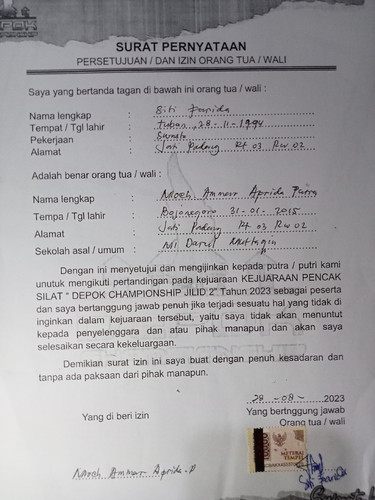 SURAT PERNYATAAN
PERSETUJUAN / DAN IZIN ORANG TUA / WALI
Saya yang bertanda tagan di bawah ini orang tua / wali :
Nama lengkap : Siti Farida
Tempat / Tgl lahir : Tuban, 28-11-1994
Pekerjaan : Swasta
Alamat : Jati Padang Rt 03 Rw 02
Adalah benar orang tua / wali :
Nama lengkap : Moch Ammar Aprida Putra
Tempa / Tgl lahir : Bojonegoro 31-01-2015
Alamat : Jati Padang Rt 03 Rw 02
Sekolah asal / umum : Mi Darul Muttaqin
Dengan ini menyetujui dan mengijinkan kepada putra / putri kami
unutuk mengikuti pertandingan pada kejuaraan KEJUARAAN PENCAK
SILAT " DEPOK CHAMPIONSHIP JILID 2" Tahun 2023 sebagai peserta
dan saya bertanggung jawab penuh jika terjadi sesuatu hal yang tidak di
inginkan dalam kejuaraan tersebut, yaitu saya tidak akan menuntut
kepada penyelenggara dan atau pihak manapun dan akan saya
selesaikan secara kekeluargaan.
Demikian surat izin ini saya buat dengan penuh kesadaran dan
tanpa ada paksaan dari pihak manapun.
28-08-2023
Yang di beri izin
Yang bertnggung jawab
Orang tua / wali
METERAI
TEMPEL
Moch Ammar Aprida.P
Siti Farida